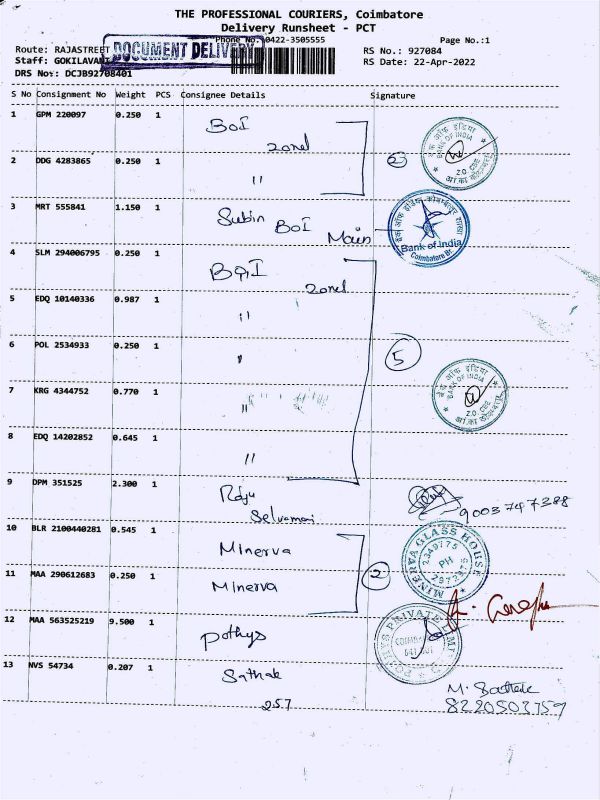 THE PROFESSIONAL COURIERS, Coimbatore
Delivery Runsheet - PCT
Phone No.:0422-3505555
Page No.:1
Route: RAJASTREET
DOCUMENT DELIVERY
RS No.: 927084
Staff: GOKILAVANI
RS Date: 22-Apr-2022
DRS Nos: DCJB92708401
S No Consignment No Weight PCS Consignee Details Signature
1 GPM 220097 0.250 1 BOI
zonel
बैंक ऑफ इंडिया
BANK OF INDIA
Z.O. CBE
2 DDG 4283865 0.250 1 "
2
3 MRT 555841 1.150 1 Subin BOI Main
Bank of India
Coimbatore Br.
4 SLM 294006795 0.250 1 BOI
zonel
5 EDQ 10140336 0.987 1 "
6 POL 2534933 0.250 1 "
5
7 KRG 4344752 0.770 1 "
बैंक ऑफ इंडिया
BANK OF INDIA
Z.O. CBE
8 EDQ 14202852 0.645 1 "
9 DPM 351525 2.300 1 Raju
Selvamani
9003747388
10 BLR 2100440281 0.545 1 Minerva
MINERVA GLASS HOUSE
2349775
PH
11 MAA 290612683 0.250 1 Minerva
2
12 MAA 563525219 9.500 1 Pothys
POTHYS PRIVATE LIMITED
13 NVS 54734 0.207 1 Sathak
257
8220503759